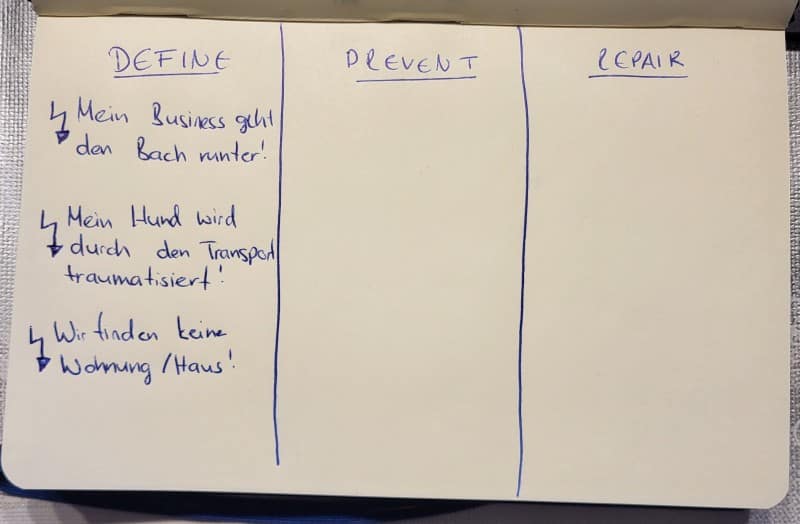 DEFINE
PREVENT
REPAIR
Mein Business geht
den Bach runter!
Mein Hund wird
durch den Transport
traumatisiert!
Wir finden keine
Wohnung / Haus!